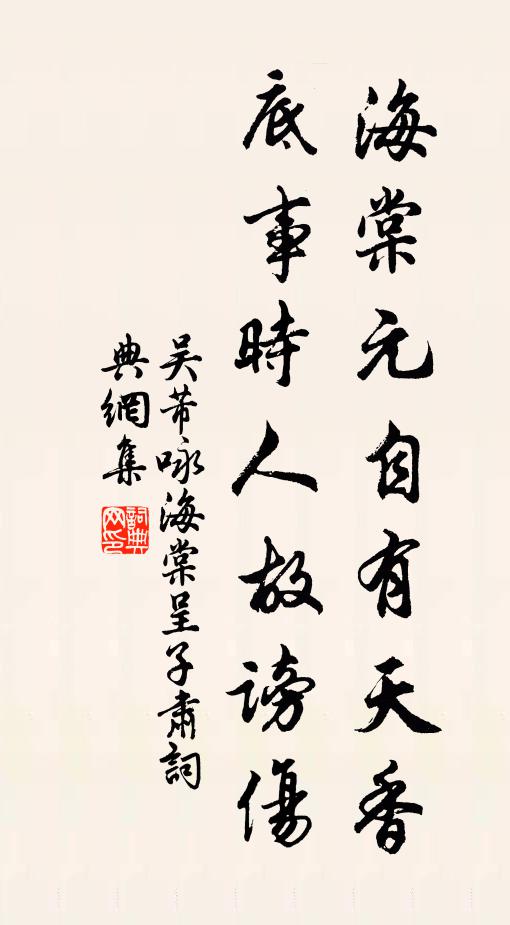 海棠元自有天香
底事時人故謗傷
吴芾咏海棠呈子肅詞
典網集
詞典
网印